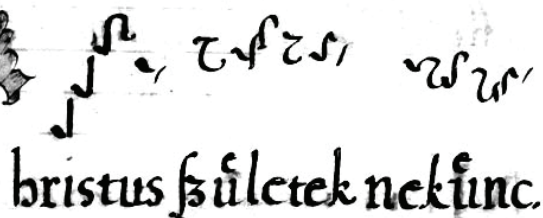 hristus ſzuͤletek nekuͤnc.